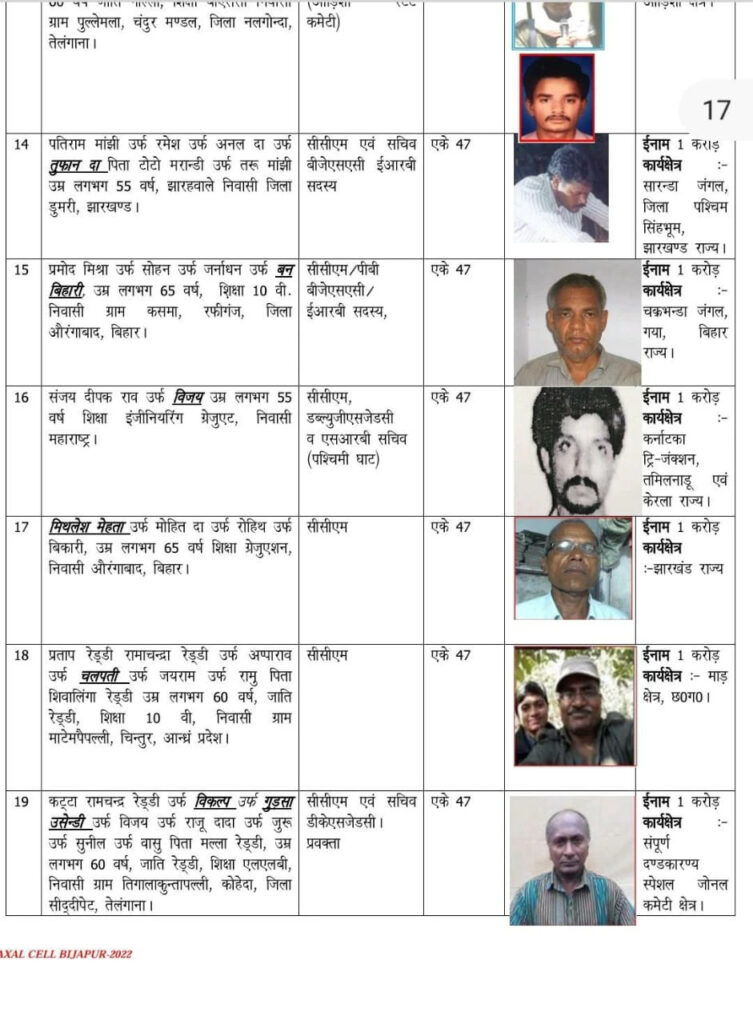 ग्राम पुल्लेमला, चंदुर मण्डल, जिला नलगोन्दा,
तेलंगाना।
कमेटी)
17
14
पतिराम मांझी उर्फ रमेश उर्फ अनल दा उर्फ
तुफान दा पिता टोटो मरान्डी उर्फ तरू मांझी
उम्र लगभग 55 वर्ष, झारहवाले निवासी जिला
डुमरी, झारखण्ड।
सीसीएम एवं सचिव
बीजेएसएसी ईआरबी
सदस्य
एके 47
ईनाम 1 करोड़
कार्यक्षेत्र :-
सारन्डा जंगल,
जिला पश्चिम
सिंहभूम,
झारखण्ड राज्य।
15
प्रमोद मिश्रा उर्फ सोहन उर्फ जर्नाधन उर्फ बन
बिहारी, उम्र लगभग 65 वर्ष, शिक्षा 10 वी.
निवासी ग्राम कसमा, रफीगंज, जिला
औरंगाबाद, बिहार।
सीसीएम/पीबी
बीजेएसएसी/
ईआरबी सदस्य,
एके 47
ईनाम 1 करोड़
कार्यक्षेत्र :-
चक्रभन्डा जंगल,
गया, बिहार
राज्य।
16
संजय दीपक राव उर्फ विजय उम्र लगभग 55
वर्ष शिक्षा इंजीनियरिंग ग्रेजुएट, निवासी
महाराष्ट्र।
सीसीएम,
डब्ल्युजीएसजेडसी
व एसआरबी सचिव
(पश्चिमी घाट)
एके 47
ईनाम 1 करोड़
कार्यक्षेत्र :-
कर्नाटका
ट्रि-जंक्शन,
तमिलनाडू एवं
केरला राज्य।
17
मिथलेश मेहता उर्फ मोहित दा उर्फ रोहिथ उर्फ
बिकारी, उम्र लगभग 65 वर्ष शिक्षा ग्रेजुएशन,
निवासी औरंगाबाद, बिहार।
सीसीएम
एके 47
ईनाम 1 करोड़
कार्यक्षेत्र
:-झारखंड राज्य
18
प्रताप रेड्डी रामाचन्द्रा रेड्डी उर्फ अप्पाराव
उर्फ चलपती उर्फ जयराम उर्फ रामु पिता
शिवालिंगा रेड्डी उम्र लगभग 60 वर्ष, जाति
रेड्डी, शिक्षा 10 वी, निवासी ग्राम
माटेमपैपल्ली, चिन्तुर, आन्ध्रं प्रदेश।
सीसीएम
एके 47
ईनाम 1 करोड़
कार्यक्षेत्र :- माड़
क्षेत्र, छ0ग0।
19
कट्टा रामचन्द्र रेड्डी उर्फ विकल्प उर्फ गुडसा
उसेन्डी उर्फ विजय उर्फ राजू दादा उर्फ जुरू
उर्फ सुनील उर्फ वासु पिता मल्ला रेड्डी, उम्र
लगभग 60 वर्ष, जाति रेड्डी, शिक्षा एलएलबी,
निवासी ग्राम तिगालाकुन्तापल्ली, कोहेदा, जिला
सीद्दीपेट, तेलंगाना।
सीसीएम एवं सचिव
डीकेएसजेडसी।
प्रवक्ता
एके 47
ईनाम 1 करोड़
कार्यक्षेत्र :-
संपूर्ण
दण्डकारण्य
स्पेशल जोनल
कमेटी क्षेत्र।
AXAL CELL BIJAPUR-2022